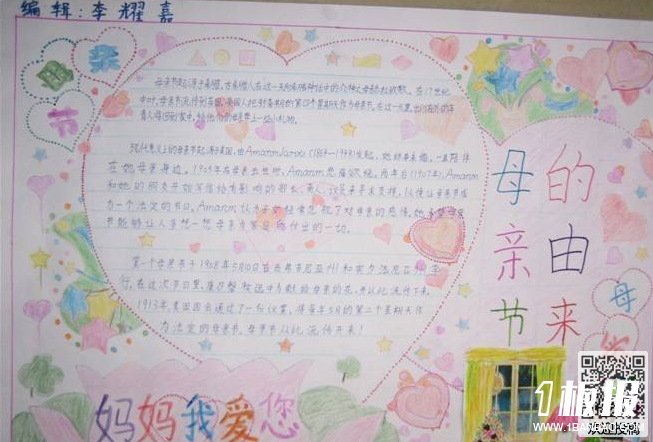 编辑:李耀嘉
母亲节
母亲节起源于希腊,古希腊人在这一天向希腊神话中的众神之母赫拉致敬。在17世纪
中叶,母亲节流传到英国,英国人把封斋期的第四个星期天作为母亲节。在这一天里,出门在外的年
轻人将回到家中,给他们的母亲带上一些小礼物。
现代意义上的母亲节起源于美国,由Amanm Jarvis (1864—1948)发起,她终身未婚,一直陪伴
在她母亲身边。1905年 母亲去世时,Amanm 悲痛欲绝。两年后(1907年),Amanm
和她的朋友开始写信给有影响的部长、商人、议员来寻求支持,以便让母亲节成
为一个法定的节日。Amanm 认为子女经常忽视了对母亲的感情,她希望母亲
节能够让人多想一想母亲为家庭所付出的一切。
第一个母亲节于1908年5月10日在西弗吉尼亚州和宾夕法尼亚州举
行,在这次节日里,康乃馨被选中为献给母亲的花,并从此流传下来。
1913年,美国国会通过了一份议案,将每年5月的第二个星期天作
为法定的母亲节。母亲节从此流传开来!
母亲节
的由来
母
妈妈我爱您
1板报
WWW.1BANBAO.COM
欢迎投稿